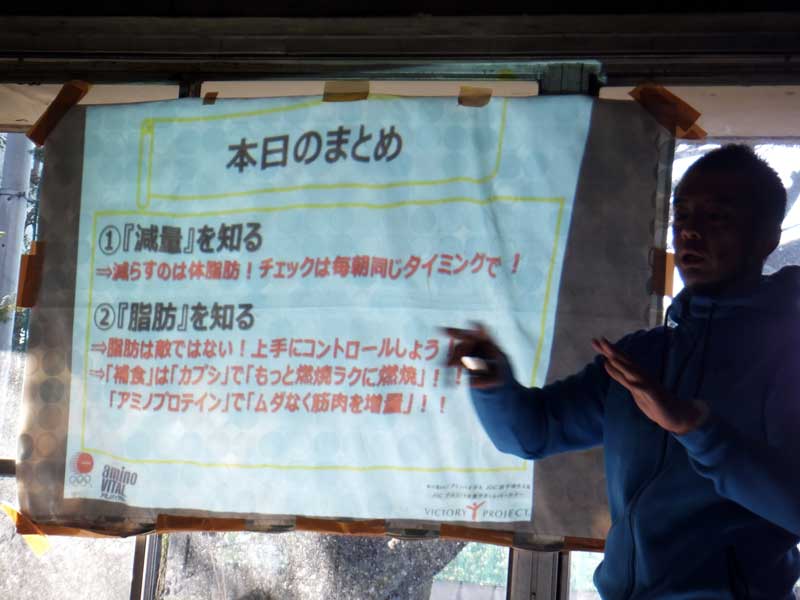 本日のまとめ
①『減量』を知る
⇒減らすのは体脂肪！チェックは毎朝同じタイミングで！
②『脂肪』を知る
⇒脂肪は敵ではない！上手にコントロールしよう！
⇒「補食」は「カプシ」で「もっと燃焼ラクに燃焼」！！
「アミノプロテイン」で「ムダなく筋肉を増量」！！
amino
VITAL
VICTORY PROJECT